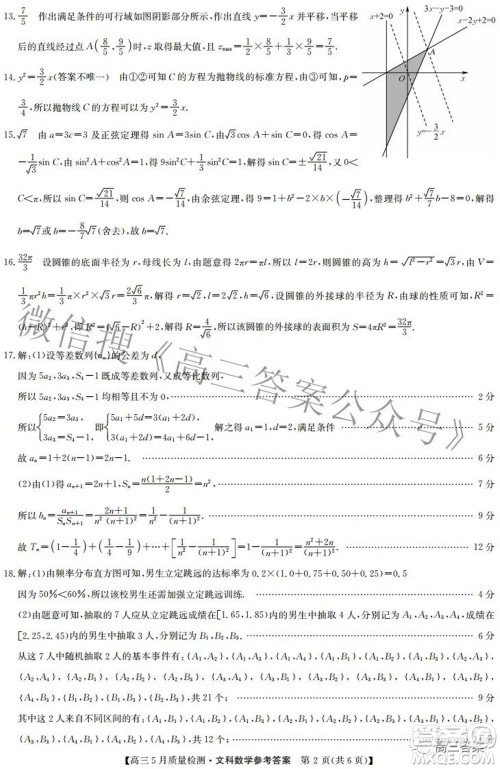 13. 7/5 作出满足条件的可行域如图阴影部分所示,作出直线 y=-3/2 x 并平移,当平移
后的直线经过点 A(8/5, 9/5)时,z 取得最大值,且 zmax=1/2×8/5+1/3×9/5=7/5.
x+2=0
y
3x-y-3=0
x-2y+2=0
A
O
x
y=-3/2 x
14. y²=3/2 x(答案不唯一) 由①②可知 C 的方程为抛物线的标准方程,由③可知, p=
3/4,所以抛物线 C 的方程可以为 y²=3/2 x.
15. √7 由 a=3c=3 及正弦定理得 sin A=3sin C,由√3cos A+sin C=0,得 cos A=
-1/√3 sin C,由 sin²A+cos²A=1,得 9sin²C+1/3 sin²C=1,解得 sin C=±√21/14,又 0<
C<π,所以 sin C=√21/14,则 cos A=-√7/14,由余弦定理,得 9=1+b²-2×b×(-√7/14),整理得 b²+√7/7 b-8=0,解得
b=√7或 b=-8/7√7(舍去),故 b=√7.
16. 32π/3 设圆锥的底面半径为 r,母线长为 l,由题意得 2πr=πl,所以 l=2r,则圆锥的高为 h=√(l²-r²)=√3r,由 V=
1/3πr²h=1/3π×r²×√3r=2√6/3 π,解得 r=√2,l=2√2,h=√6,设圆锥的外接球的半径为 R,由球的性质可知,R²=
(h-R)²+r²,即 R²=(√6-R)²+2,解得 R=4/√6,所以该圆锥的外接球的表面积为 S=4πR²=32π/3.
17. 解:(1)设等差数列{aₙ}的公差为 d,
因为 5a₂,3a₃,S₄-1 既成等差数列,又成等比数列,
所以 5a₂,3a₃,S₄-1 均相等且不为 0, 2 分
所以{5a₂=3a₃, 3a₃=S₄-1, 即{5a₁+5d=3(a₁+2d), 3(a₁+2d)=4a₁+6d-1, 解之得 a₁=1,d=2,满足条件 5 分
故 aₙ=1+2(n-1)=2n-1. 6 分
(2)由(1)得 aₙ₊₁=2n+1,Sₙ=n(1+2n-1)/2=n², 7 分
所以 bₙ=aₙ₊₁/(SₙSₙ₊₁)=(2n+1)/(n²(n+1)²)=1/n²-1/(n+1)². 9 分
故 Tₙ=(1-1/4)+(1/4-1/9)+…+[1/n²-1/(n+1)²]=1-1/(n+1)²=(n²+2n)/(n+1)². 12 分
18. 解:(1)由频率分布直方图可知,男生立定跳远的达标率为 0.2×(1.0+0.75+0.50+0.25)=0.5
因为 50%<60%,所以该校男生还需加强立定跳远训练. 4 分
(2)由题意可知,抽取的 7 人应从立定跳远成绩在[1.65,1.85)内的男生中抽取 4 人,分别记为 A₁,A₂,A₃,A₄,成绩在
[2.25,2.45)内的男生中抽取 3 人,分别记为 B₁,B₂,B₃. 6 分
从这 7 人中随机抽取 2 人的基本事件有:(A₁,A₂),(A₁,A₃),(A₁,A₄),(A₁,B₁),(A₁,B₂),(A₁,B₃),(A₂,A₃),
(A₂,A₄),(A₂,B₁),(A₂,B₂),(A₂,B₃),(A₃,A₄),(A₃,B₁),(A₃,B₂),(A₃,B₃),(A₄,B₁),(A₄,B₂),
(A₄,B₃),(B₁,B₂),(B₁,B₃),(B₂,B₃),共 21 个; 9 分
其中这 2 人来自不同区间的有:(A₁,B₁),(A₁,B₂),(A₁,B₃),(A₂,B₁),(A₂,B₂),(A₂,B₃),(A₃,B₁),
(A₃,B₂),(A₃,B₃),(A₄,B₁),(A₄,B₂),(A₄,B₃),共 12 个;
【高三 5 月质量检测·文科数学参考答案 第 2 页(共 6 页)】
微信搜《高三答案公众号》
高三答案